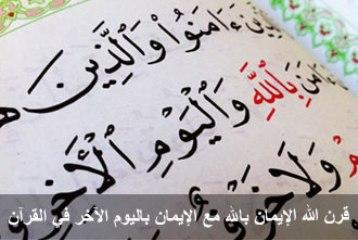 ءَامَنُوا۟ وَٱلَّذِينَ
بِٱللَّهِ وَٱلْيَوْمِ ٱلْأَخِرِ
وَلَا خَوْ
قرن الله الإيمان بالله مع الإيمان باليوم الآخر في القرآن